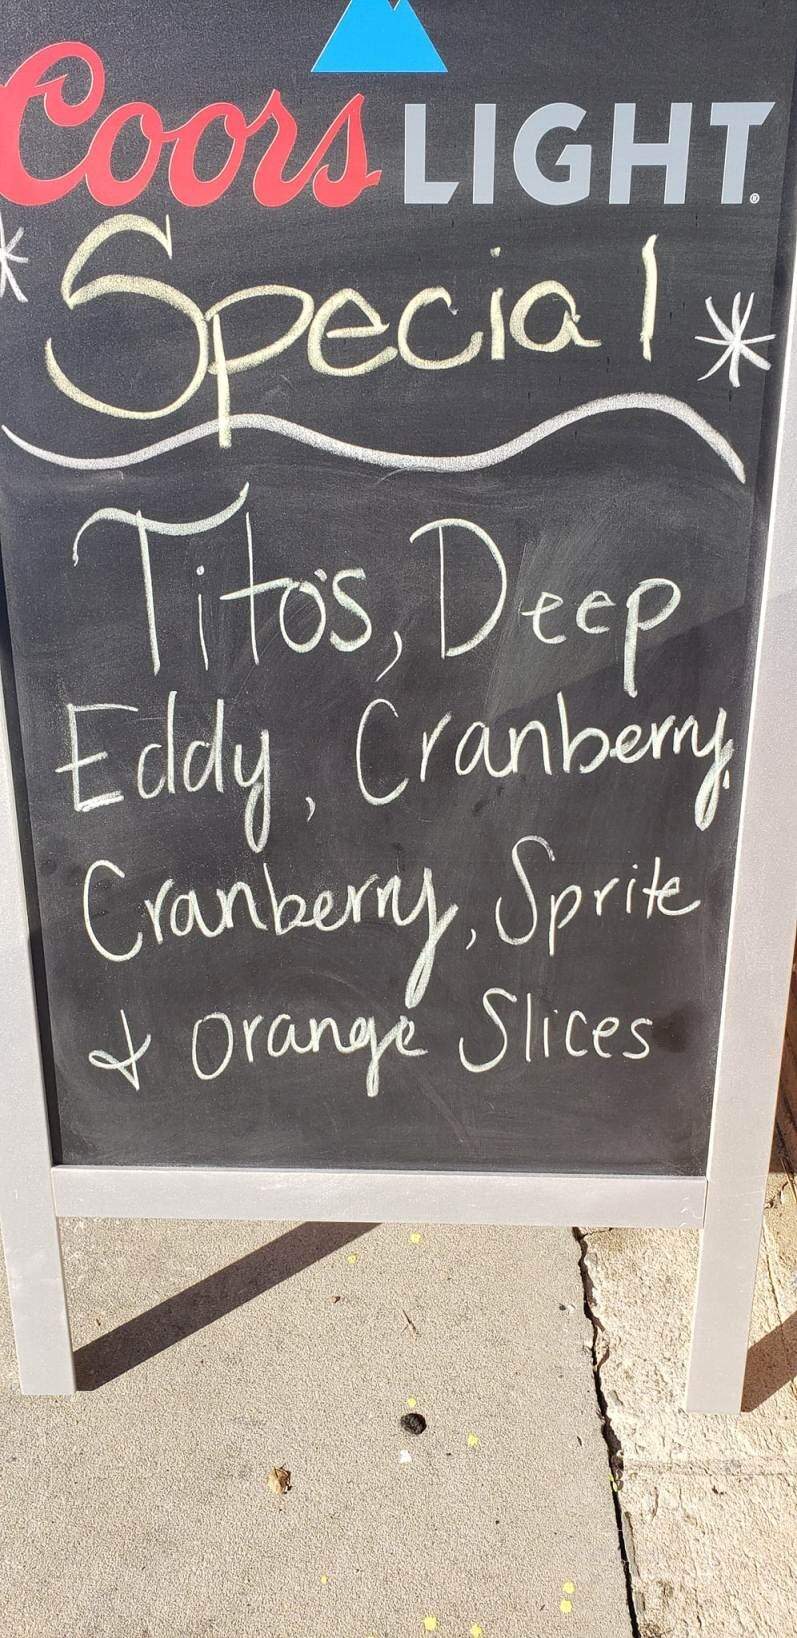 Coors LIGHT®
* Special *
Tito's, Deep
Eddy, Cranberry,
Cranberry, Sprite
& Orange Slices